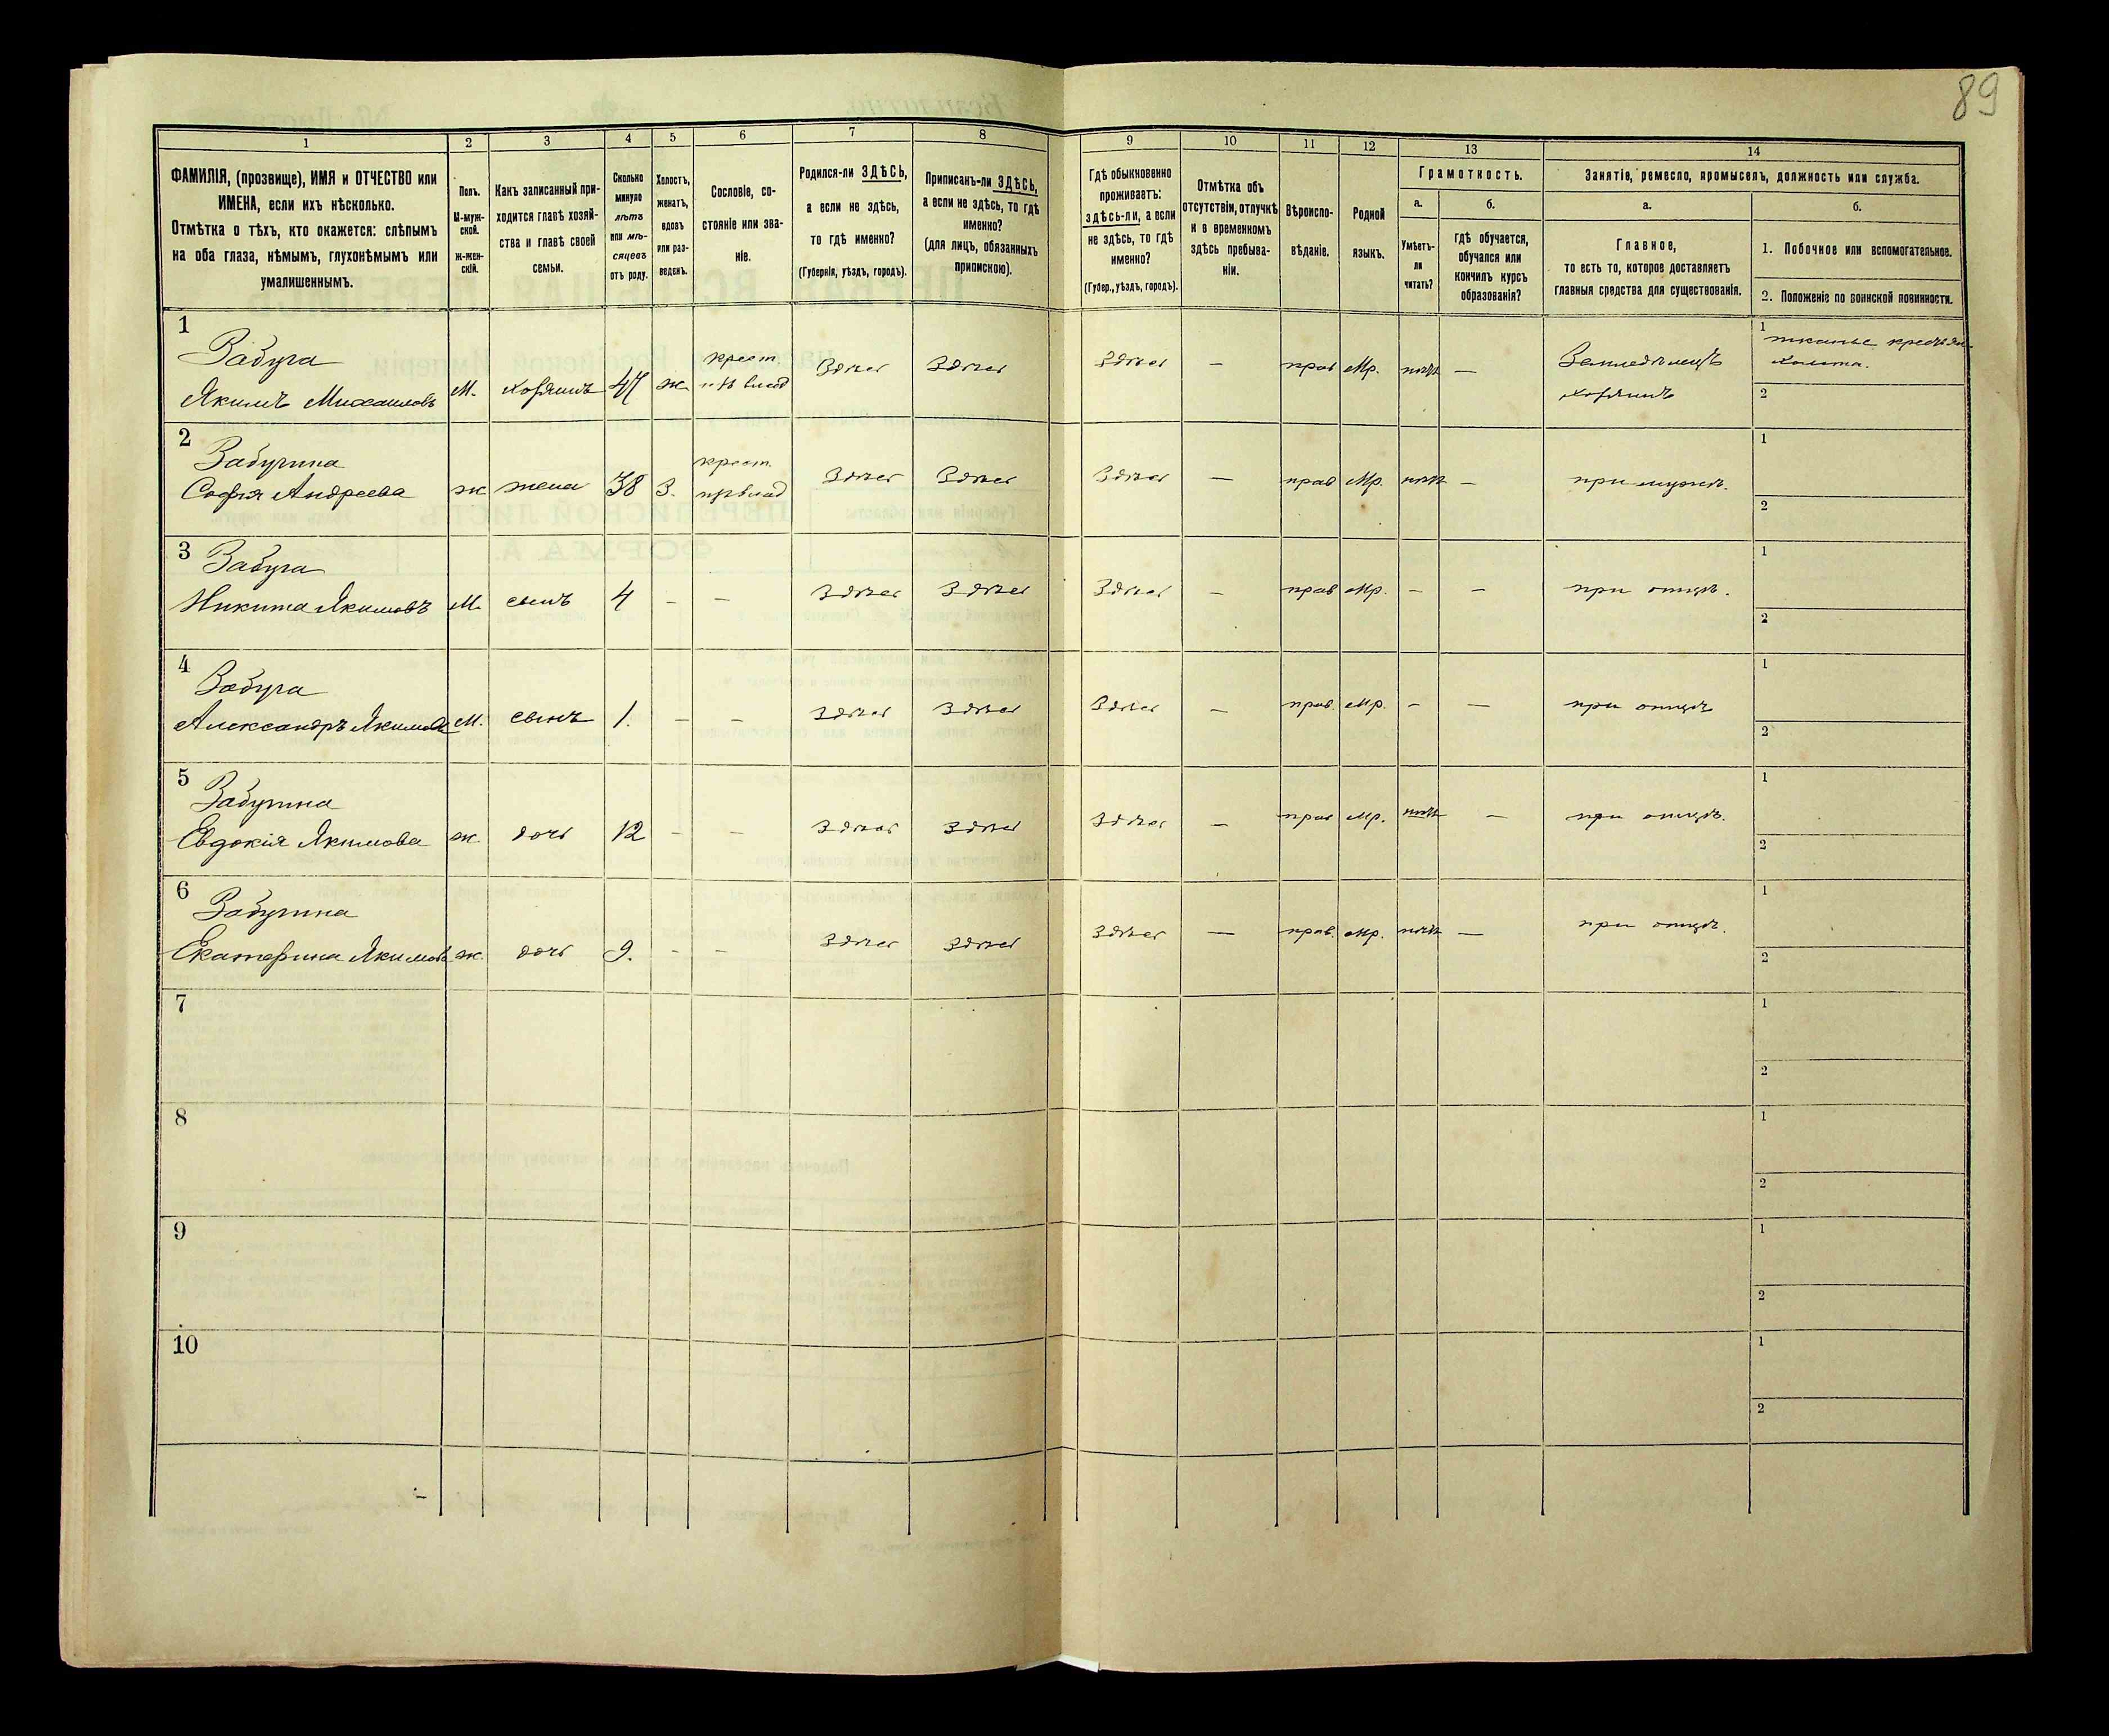 89
1 2 3 4 5 6 7 8 9 10 11 12 13 14
ФАМИЛІЯ, (прозвище), ИМЯ и ОТЧЕСТВО или
ИМЕНА, если ихъ нѣсколько.
Отмѣтка о тѣхъ, кто окажется: слѣпымъ
на оба глаза, нѣмымъ, глухонѣмымъ или
умалишеннымъ.
Полъ.
М-муж-
ской.
Ж-жен-
скій.
Какъ записанный при-
ходится главѣ хозяй-
ства и главѣ своей
семьи.
Сколько
минуло
лѣтъ
или мѣ-
сяцевъ
отъ роду.
Холостъ,
женатъ,
вдовъ
или раз-
веденъ.
Сословіе, со-
стояніе или зва-
ніе.
Родился-ли ЗДѢСЬ,
а если не здѣсь,
то гдѣ именно?
(Губернія, уѣздъ, городъ).
Приписанъ-ли ЗДѢСЬ,
а если не здѣсь, то гдѣ
именно?
(для лицъ, обязанныхъ
припискою).
Гдѣ обыкновенно
проживаетъ:
здѣсь-ли, а если
не здѣсь, то гдѣ
именно?
(Губер., уѣздъ, городъ).
Отмѣтка объ
отсутствіи, отлучкѣ
и о временномъ
здѣсь пребыва-
ніи.
Вѣроиспо-
вѣданіе.
Родной
языкъ.
Грамотность.
а.
Умѣетъ-
ли
читать?
б.
гдѣ обучается,
обучался или
кончилъ курсъ
образованія?
Занятіе, ремесло, промыселъ, должность или служба.
а.
Главное,
то есть то, которое доставляетъ
главныя средства для существованія.
б.
1. Побочное или вспомогательное.
2. Положеніе по воинской повинности.
1
Забуга
Якимъ Михаиловъ
М.
хозяинъ
47
ж
крест.
влад
Здѣсь
Здѣсь
Здѣсь
—
прав
Мр.
нѣтъ
—
Земледѣлецъ
хозяинъ
1
тканье
холста.
2
2
Забугина
Софія Андреева
ж
жена
38
З.
крест.
влад
Здѣсь
Здѣсь
Здѣсь
—
прав
Мр.
нѣтъ
—
при мужѣ.
1
2
3
Забуга
Никита Якимовъ
М.
сынъ
4
-
-
Здѣсь
Здѣсь
Здѣсь
—
прав
Мр.
-
-
при отцѣ.
1
2
4
Забуга
Александръ Якимовъ
М.
сынъ
1.
-
-
Здѣсь
Здѣсь
Здѣсь
—
прав.
Мр.
-
—
при отцѣ
1
2
5
Забугина
Евдокія Якимова
ж
дочь
12
-
-
Здѣсь
Здѣсь
Здѣсь
—
прав
Мр.
нѣтъ
—
при отцѣ.
1
2
6
Забугина
Екатерина Якимова
ж.
дочь
9.
-
-
Здѣсь
Здѣсь
Здѣсь
—
прав.
Мр.
нѣтъ
—
при отцѣ.
1
2
7
1
2
8
1
2
9
1
2
10
1
2